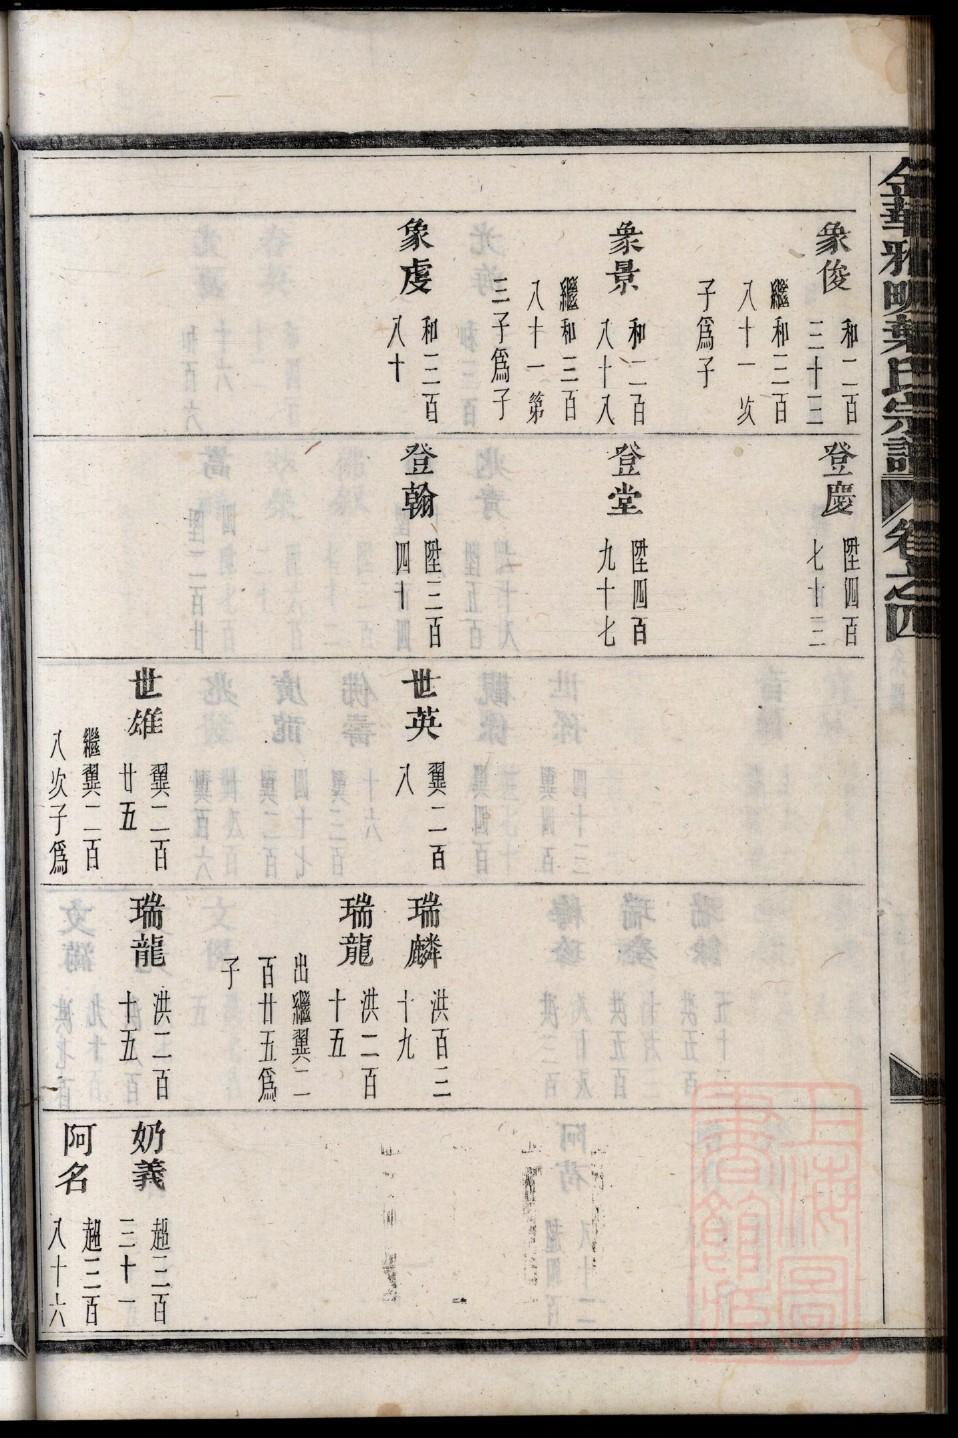 金華雅畈葉氏宗譜 卷之四
象俊
和二百
三十三
繼和三百
八十一次
子爲子
象景
和二百
八十八
繼和三百
八十一第
三子爲子
象虔
和三百
八十
登慶
陞四百
七十三
登堂
陞四百
九十七
登翰
陞三百
四十
世英
翼二百
八
世雄
翼二百
廿五
繼翼二百
八次子爲
瑞麟
洪百三
十九
瑞龍
洪二百
十五
出繼翼二
百廿五爲
子
瑞龍
洪二百
十五
奶義
趙二百
三十一
阿名
趙三百
八十六
上海圖
書館藏